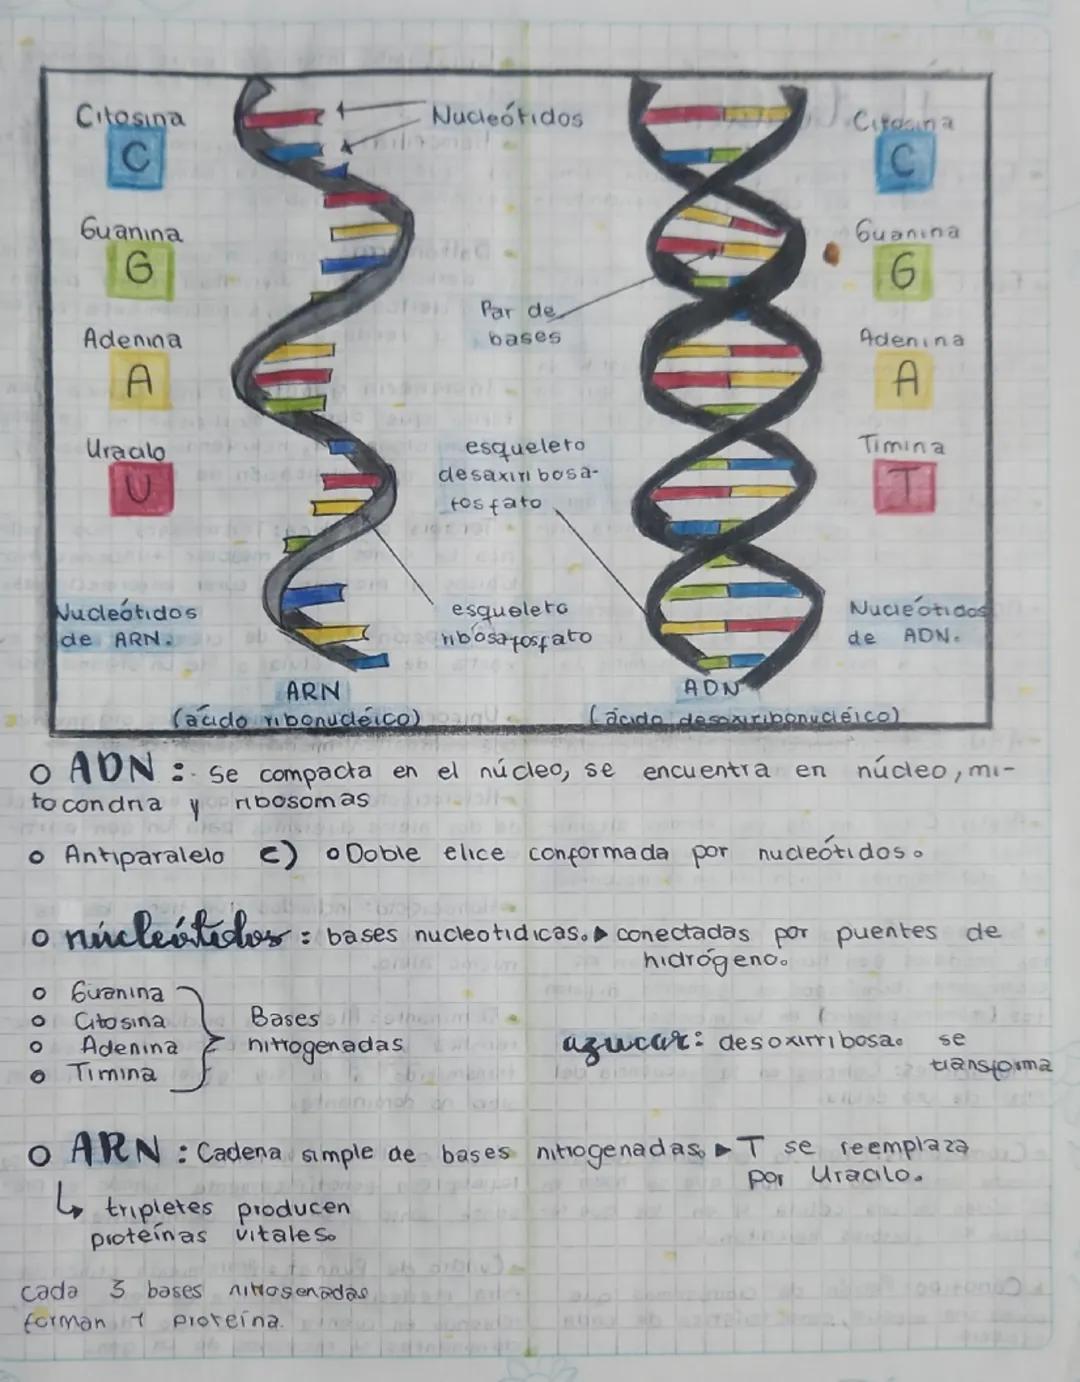 Citosina
C
Guanina
G
Adenina
A
Uracilo
U
Nucleótidos
de ARN.
Nucleótidos
Par de
bases
esqueleto
desaxirribosa-
fosfato
esqueleto
ribosafosfato
ARN
(ácido ribonucléico)
ADN
(ácido desoxirribonucléico)
Citosina
C
Guanina
G
Adenina
A
Timina
T
Nucleótidos
de ADN.
ADN: Se compacta en el núcleo, se encuentra en núcleo, mi-
tocondria y ribosomas
Antiparalelo Doble elice conformada por nucleótidos.
núcleótidos: bases nucleotidicas. ▶ conectadas por puentes de
hidrógeno.
Guanina
Citosina
Adenina
Timina
Bases
nitrogenadas
azucar: desoxirribosa. se
transforma
ARN: Cadena simple de bases nitrogenadas. ▶ T se reemplaza
por Uracilo.
↳ tripletes producen
proteínas vitales.
cada 3 bases nitrogenadas
forman 1 proteína.